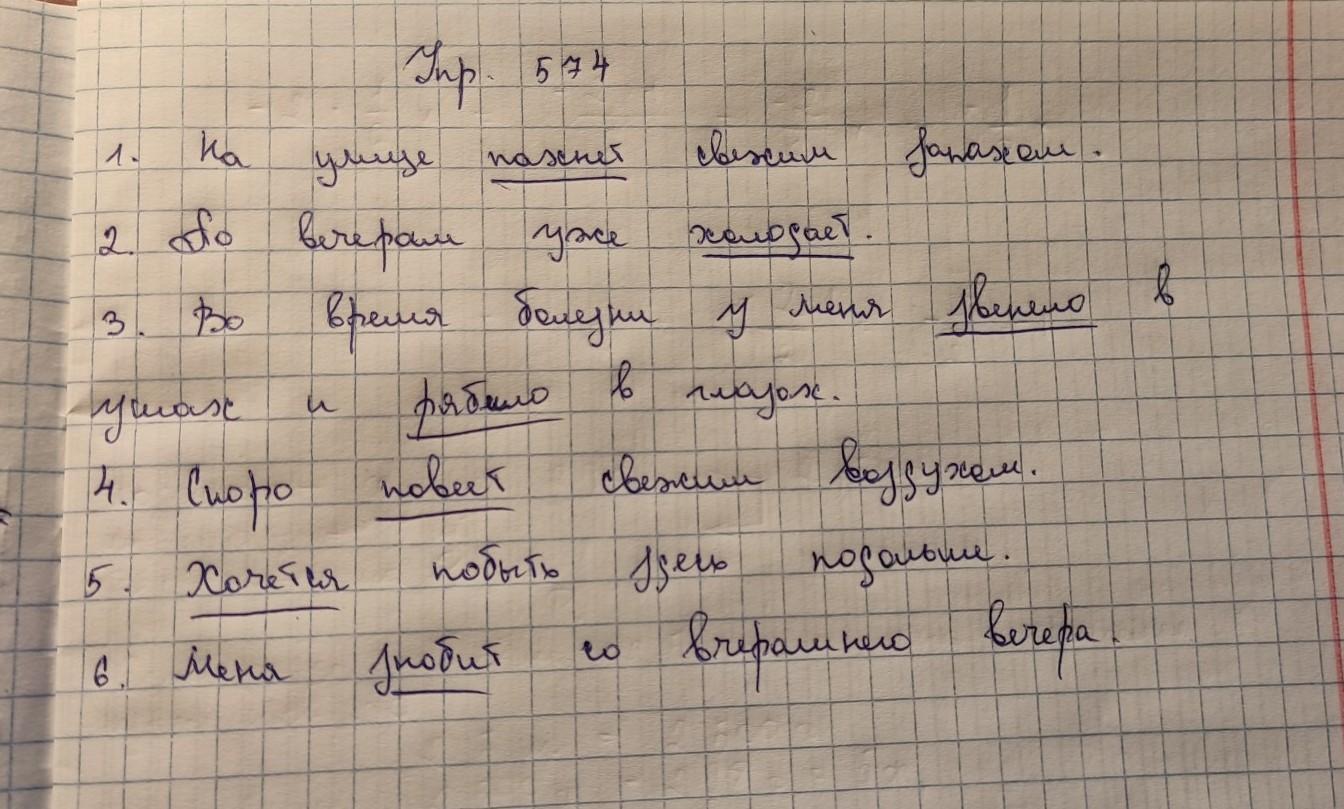 Упр. 574
1. На улице пахнет свежим запахом.
2. По вечерам уже холодает.
3. Во время болезни у меня звенело в
ушах и рябило в глазах.
4. Скоро повеет свежим воздухом.
5. Хочется побыть здесь подольше.
6. Меня знобит со вчерашнего вечера.